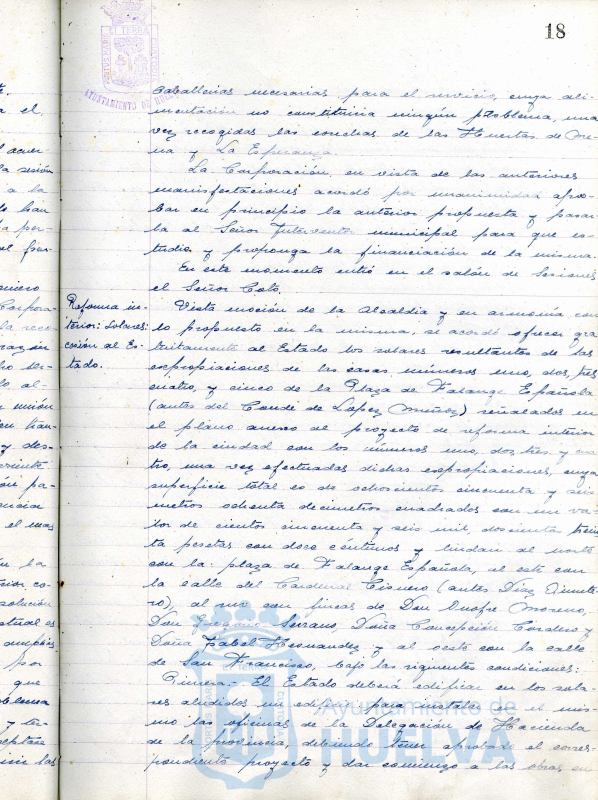 18
caballerías necesarias para el servicio, cuya ali-
mentación no constituiria ningún problema, una
vez recogidas las cosechas de las Huertas de Me-
na y La Esperanza.
La Corporación, en vista de las anteriores
manifestaciones acordó por unanimidad apro-
bar en principio la anterior propuesta y pasar-
la al Señor Interventor municipal para que es-
tudie y proponga la financiación de la misma.
En este momento entró en el salón de sesiones
el Señor Coto.
Reforma in-
terior: Solares:
cesión al Es-
tado.
Vista moción de la Alcaldia y en armonía con
lo propuesto en la misma, se acordó ofrecer gra
tuitamente al Estado los solares resultantes de las
expropiaciones de las casas números uno, dos, tres
cuatro, y cinco de la Plaza de Falange Española
(antes del Conde de López Muñoz) señalados en
el plano anexo al proyecto de reforma interior
de la ciudad con los números uno, dos, tres y cua
tro, una vez efectuadas dichas expropiaciones, cuya
superficie total es de ochocientos cincuenta y seis
metros ochenta decimetros cuadrados con un va-
lor de cientos cincuenta y seis mil, doscientas trein
ta pesetas con doce céntimos y lindan al norte
con la plaza de Falange Española, al este con
la calle del Cardenal Cisneros (antes Díaz Quinte-
ro), al sur con fincas de Don Onofre Moreno,
Don Gregorio Serrano, Doña Concepción Cordero y
Doña Isabel Hernandez y al oeste con la calle
de San Francisco, bajo las siguientes condiciones:
Primera.- El Estado deberá edificar en los sola-
res aludidos un edificio para instalar en el mis-
mo las oficinas de la Delegación de Hacienda
de la provincia, debiendo tener aprobado el corres-
pondiente proyecto y dar comienzo a las obras en
Ayuntamiento de
HUELVA